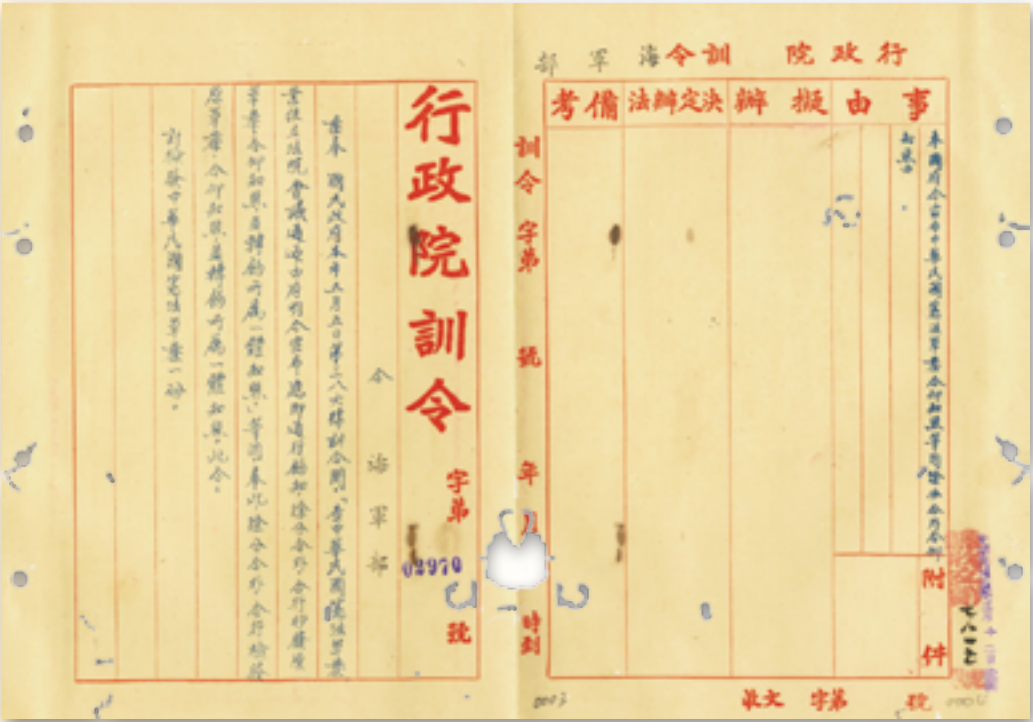 行政院訓令海軍部
事由
擬辦
決定辦法
備考
奉國府令宣布中華民國憲法草案令仰知照等因除分令外令仰
知照由
附件
收文 字第 號
0003
訓令 字第 號 年 月 時到
行政院訓令
字第 02970 號
令 海軍部
案奉 國民政府本年五月五日第三八六號訓令開:「查中華民國憲法草案
業經立法院會議通過由府明令宣布應即通行飭知除分令外合行抄發原
草案令仰知照並轉飭所屬一體知照」等因奉此除分令外合行檢發
原草案,令仰知照,並轉飭所屬一體知照。此令。
計檢發中華民國憲法草案一份。